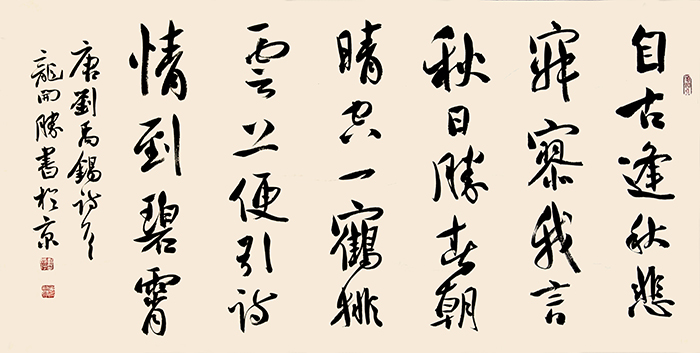 自古逢秋悲
寂寥我言
秋日勝春朝
晴空一鶴排
雲上便引詩
情到碧霄
唐劉禹錫詩一首
龍開勝書於京